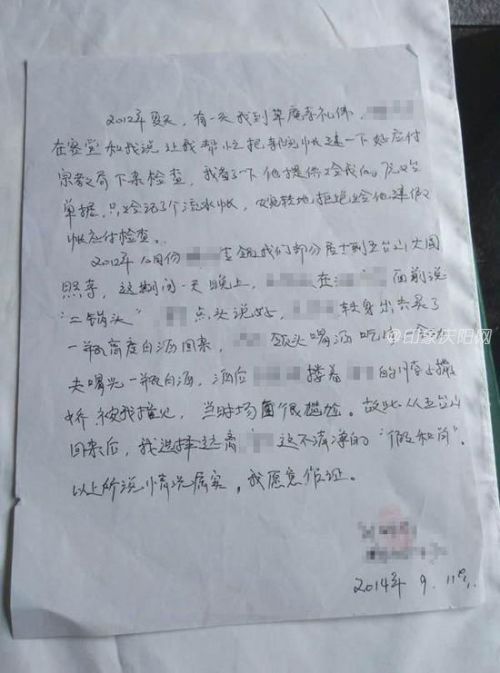 2012年夏天，有一天我到草庵寺礼佛，
在客堂和我说让我帮忙把部分帐建一下好应付
宗教局下来检查，我看了一下他提供给我的
单据，只给记了个流水帐，婉转地拒绝给他建假
帐应付检查。
2012年 月份 生组我们部分居士到五台山大圆
照寺，这期间一天晚上， 在 面前说
"二锅头" 点头说好， 转身出去买了
一瓶高度白酒回来， 领头喝酒吃
夫喝光一瓶白酒，酒后 搂着 的 撒
娇 被我撞见，当时场面很尴尬。故此从五台山
回来后，我选择远离 这不清净的"假和尚"。
以上所说情况属实，我愿意作证。
2014年 9. 11号.
印象庆阳网